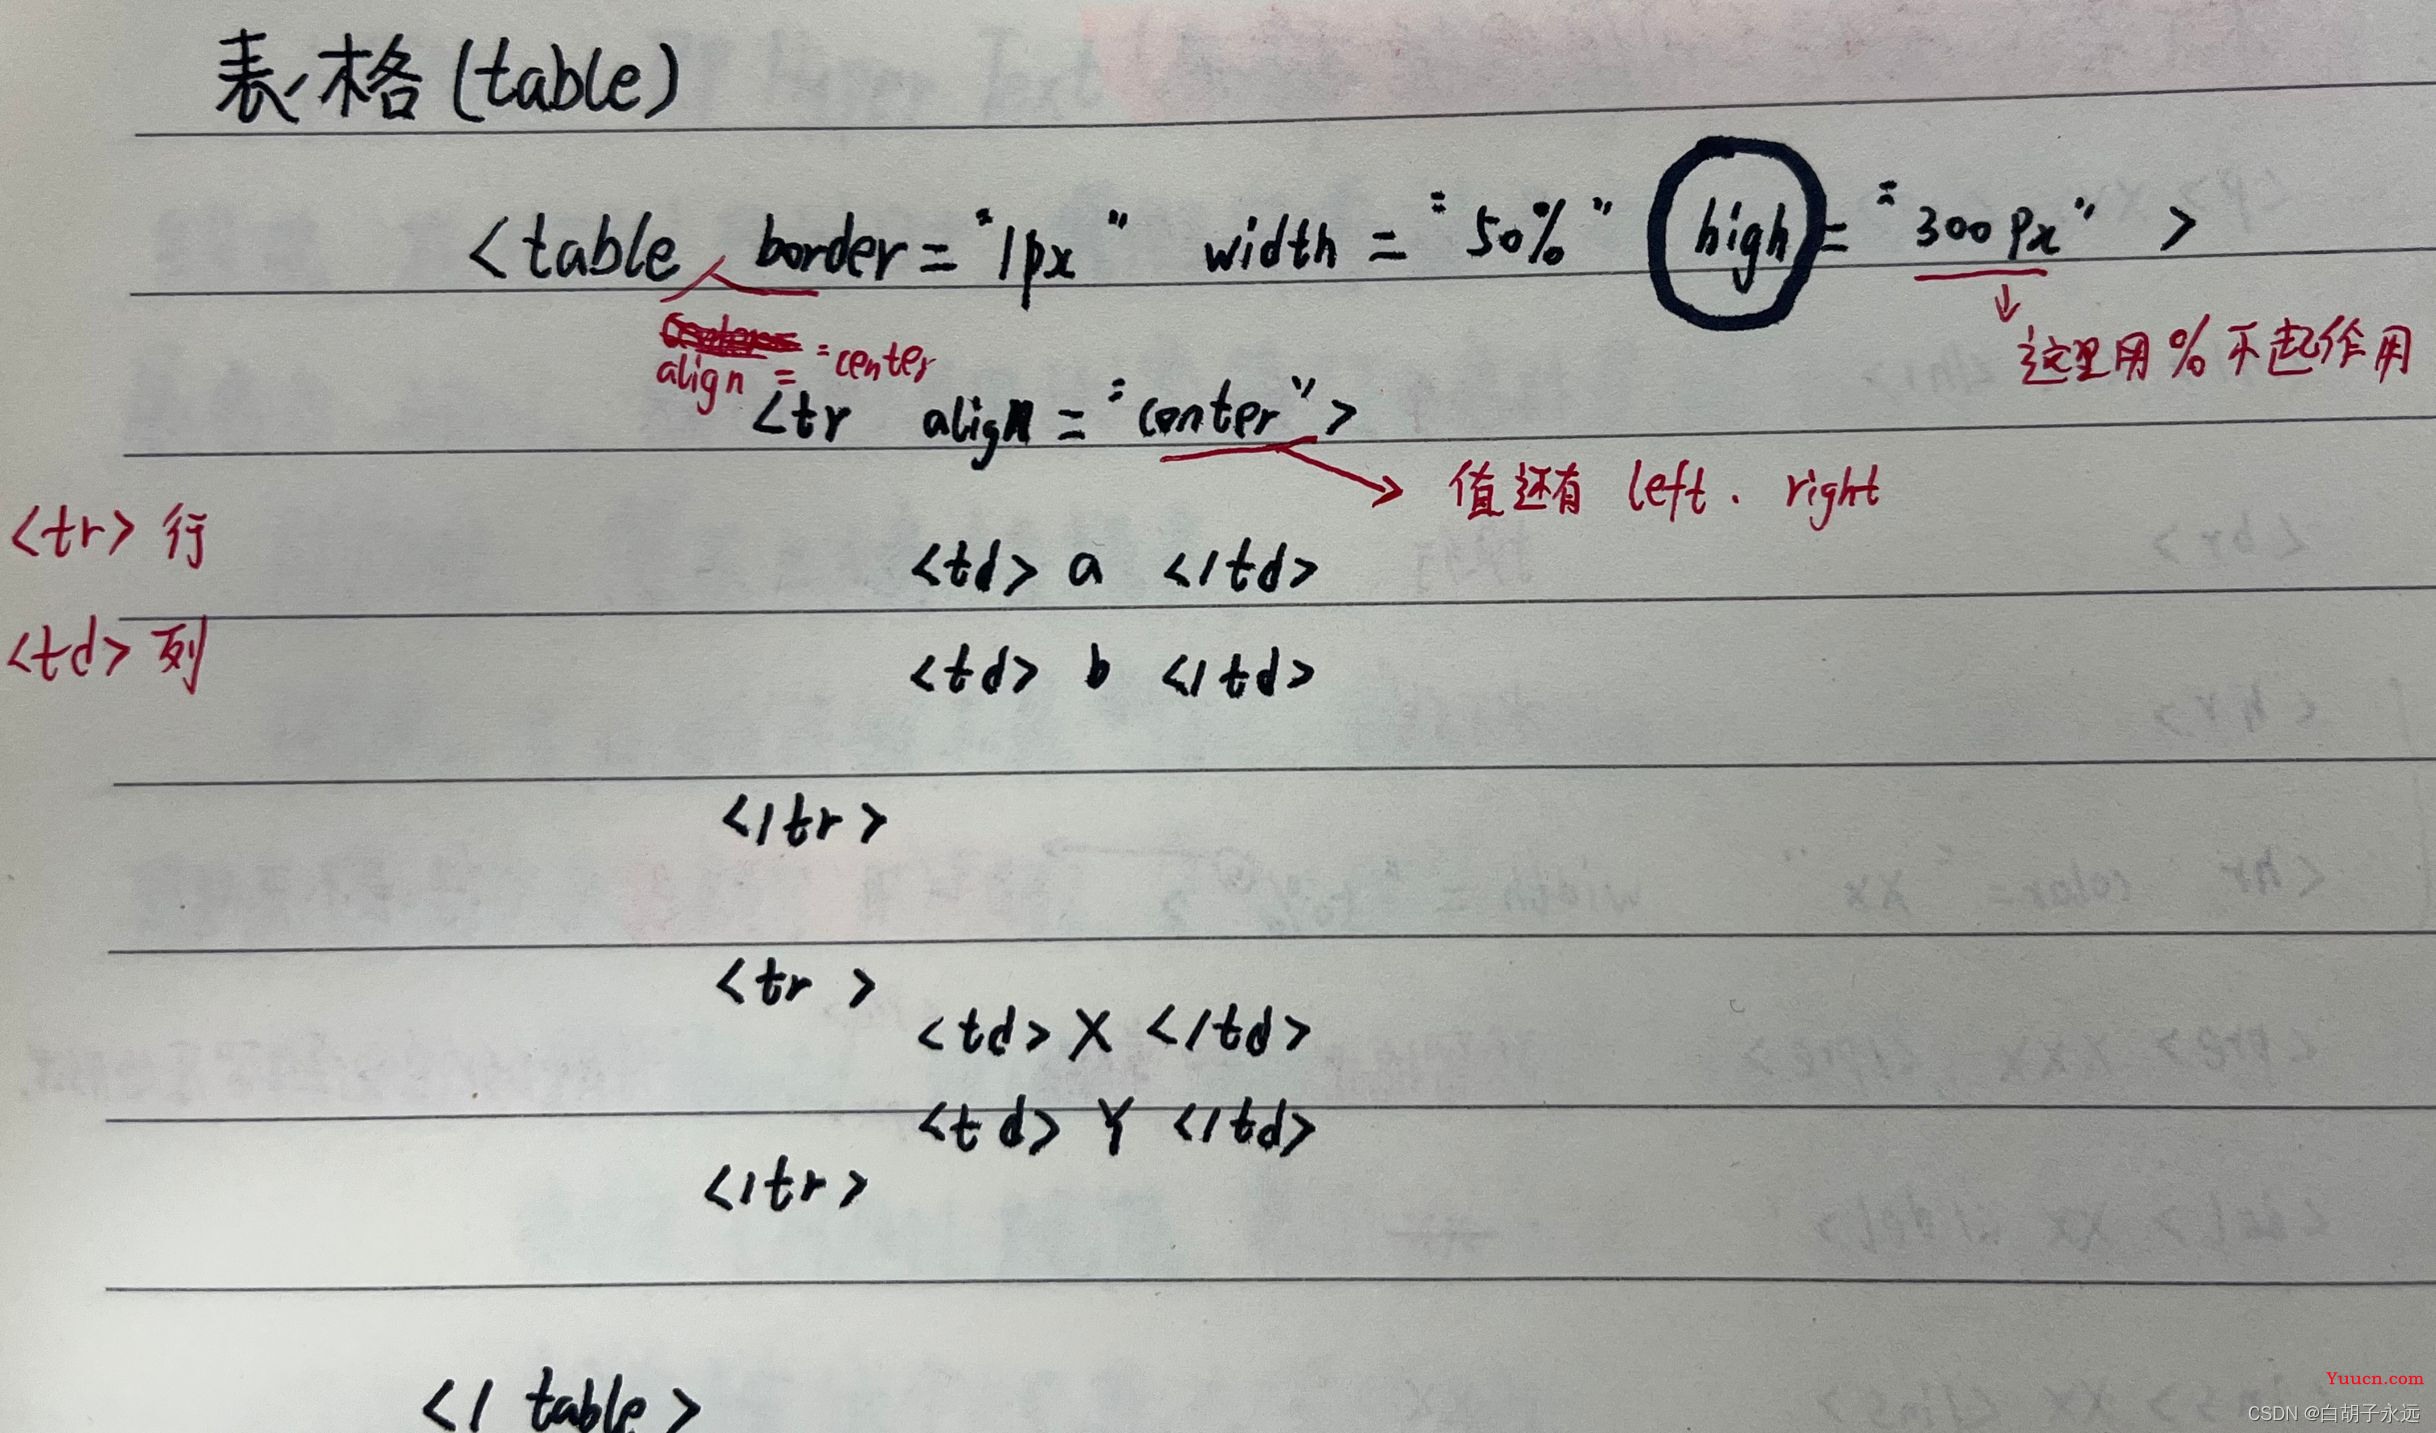 表格(table)
<table border="1px" width="50%" high="300px">
align="center
这里用%不起作用
<tr align="center">
值还有 left. right
<tr>行
<td>a</td>
<td>列
<td>b</td>
</tr>
<tr>
<td>X</td>
<td>Y</td>
</tr>
</table>
Yuucn.com
CSDN @白胡子永远